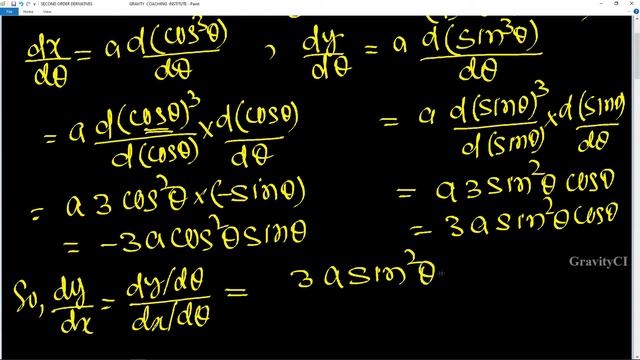 SECOND ORDER DERIVATIVES GRAVITY COACHING INSTITUTE - Paint
File Home View
dx/dθ = a d(cos³θ)/dθ , dy/dθ = a d(sin³θ)/dθ
= a d(cosθ)³/d(cosθ) × d(cosθ)/dθ = a d(sinθ)³/d(sinθ) × d(sinθ/dθ
= a 3 cos²θ × (-sinθ) = a 3 sin²θ cosθ
= -3a cos²θ sinθ = 3a sin²θ cosθ
GravityCI
So, dy/dx = dy/dθ / dx/dθ = 3 a sin²θ